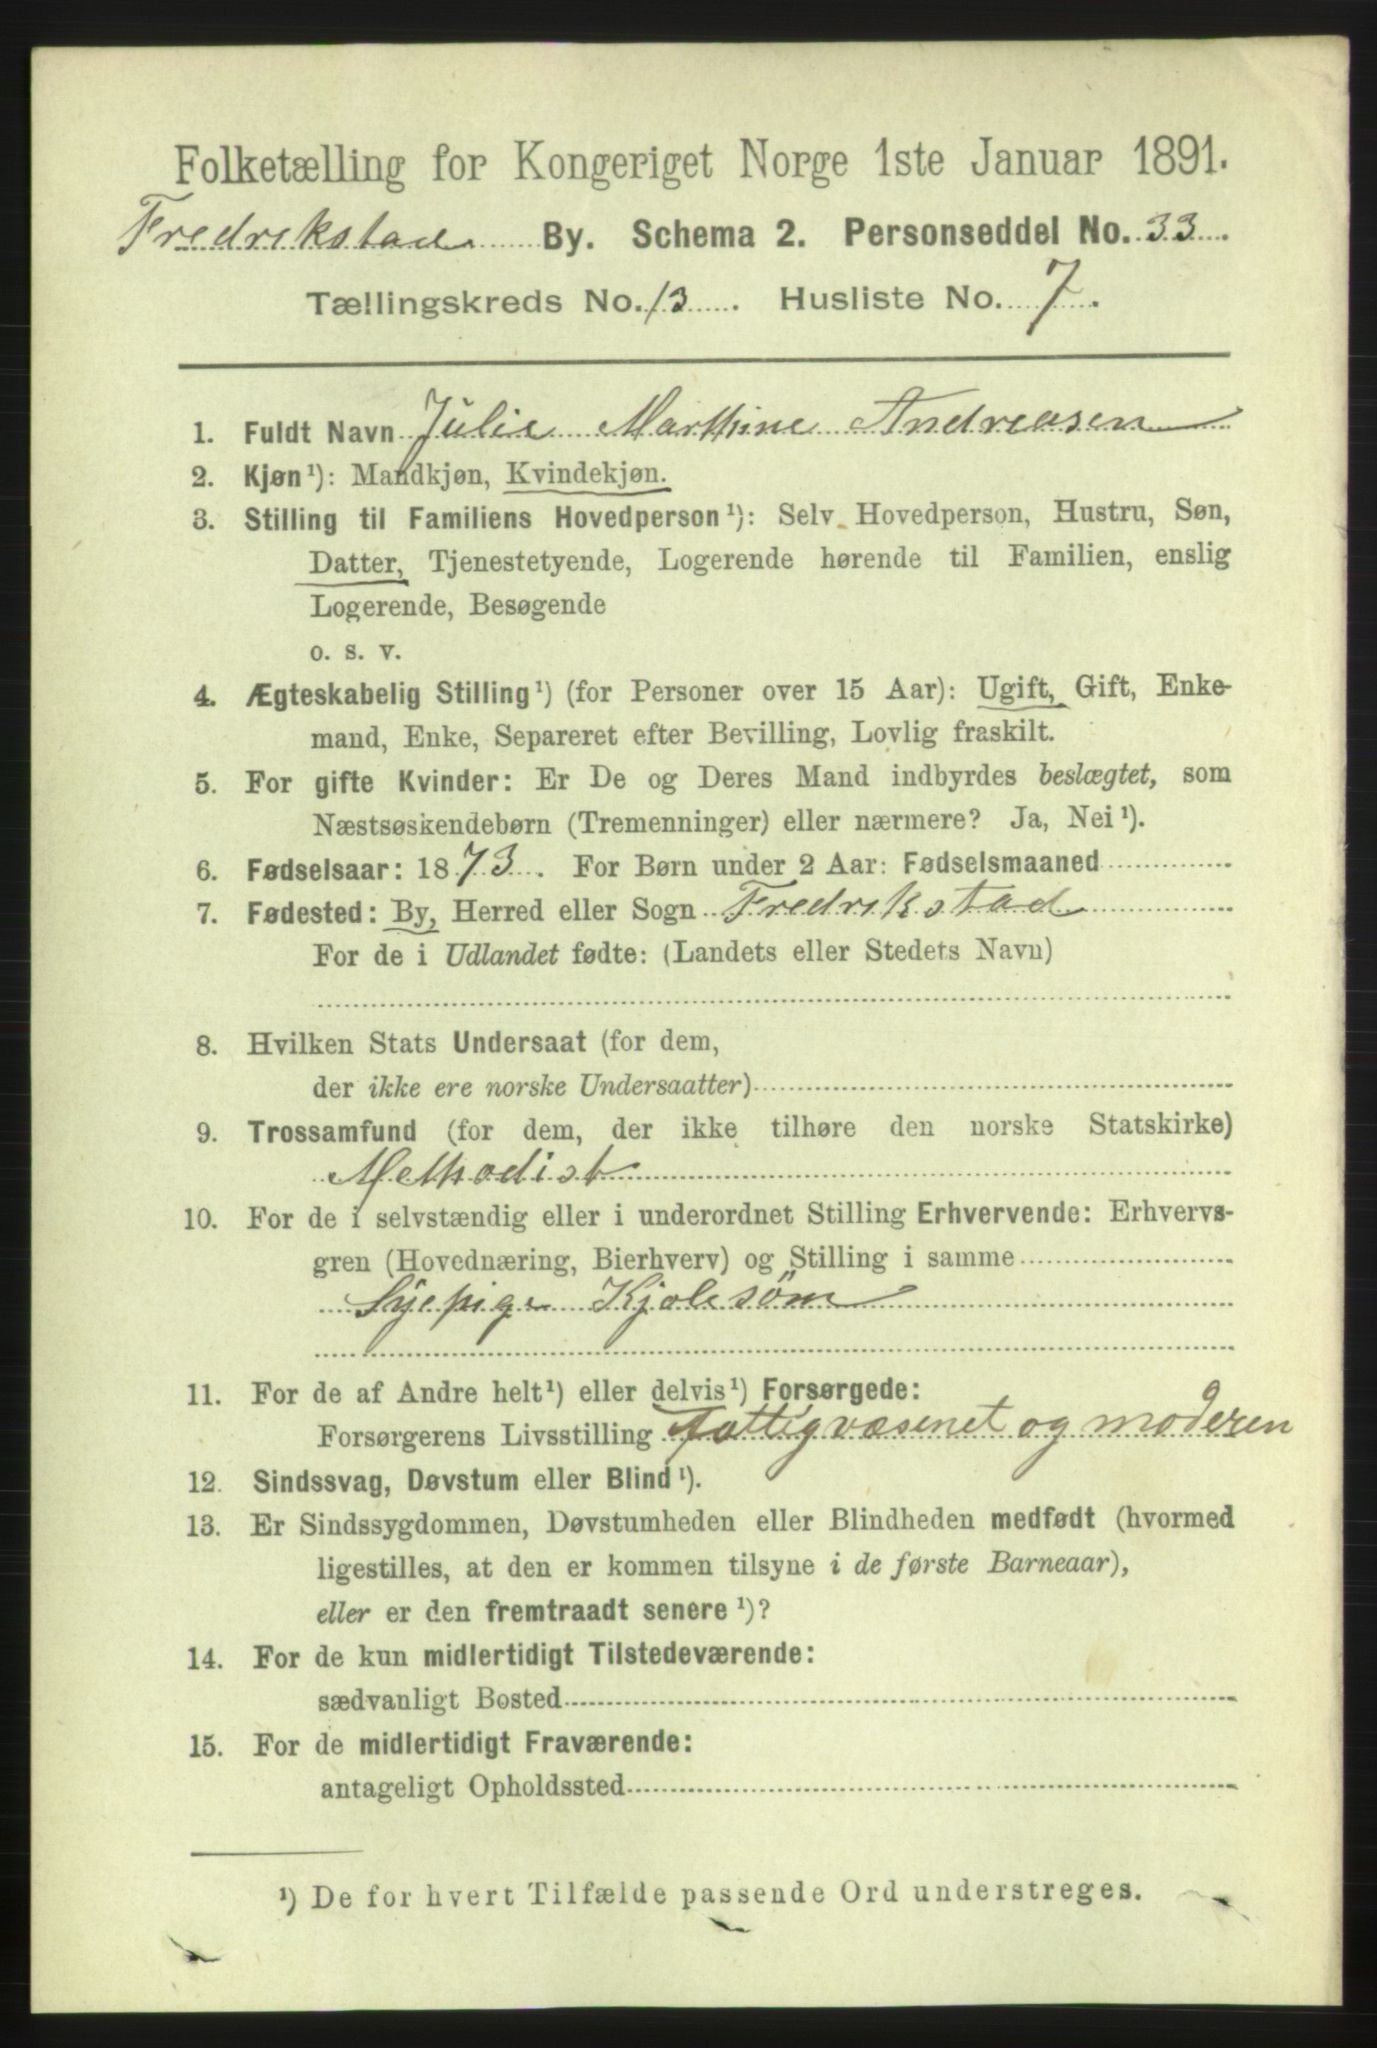 Folketælling for Kongeriget Norge 1ste Januar 1891.
Fredrikstad By. Schema 2. Personseddel No. 33.
Tællingskreds No. 13. Husliste No. 7.
1. Fuldt Navn Julie Marthine Andreasen
2. Kjøn¹): Mandkjøn, Kvindekjøn.
3. Stilling til Familiens Hovedperson¹): Selv Hovedperson, Hustru, Søn,
Datter, Tjenestetyende, Logerende hørende til Familien, enslig
Logerende, Besøgende
o. s. v.
4. Ægteskabelig Stilling¹) (for Personer over 15 Aar): Ugift, Gift, Enke-
mand, Enke, Separeret efter Bevilling, Lovlig fraskilt.
5. For gifte Kvinder: Er De og Deres Mand indbyrdes beslægtet, som
Næstsøskendebørn (Tremenninger) eller nærmere? Ja, Nei¹).
6. Fødselsaar: 1873. For Børn under 2 Aar: Fødselsmaaned
7. Fødested: By, Herred eller Sogn Fredrikstad
For de i Udlandet fødte: (Landets eller Stedets Navn)
8. Hvilken Stats Undersaat (for dem,
der ikke ere norske Undersaatter)
9. Trossamfund (for dem, der ikke tilhøre den norske Statskirke)
Methodist
10. For de i selvstændig eller i underordnet Stilling Erhvervende: Erhvervs-
gren (Hovednæring, Bierhverv) og Stilling i samme
Syepige Kjolesøm
11. For de af Andre helt¹) eller delvis¹) Forsørgede:
Forsørgerens Livsstilling Fattigvæsenet og moderen
12. Sindssvag, Døvstum eller Blind¹).
13. Er Sindssygdommen, Døvstumheden eller Blindheden medfødt (hvormed
ligestilles, at den er kommen tilsyne i de første Barneaar),
eller er den fremtraadt senere¹)?
14. For de kun midlertidigt Tilstedeværende:
sædvanligt Bosted
15. For de midlertidigt Fraværende:
antageligt Opholdssted
¹) De for hvert Tilfælde passende Ord understreges.